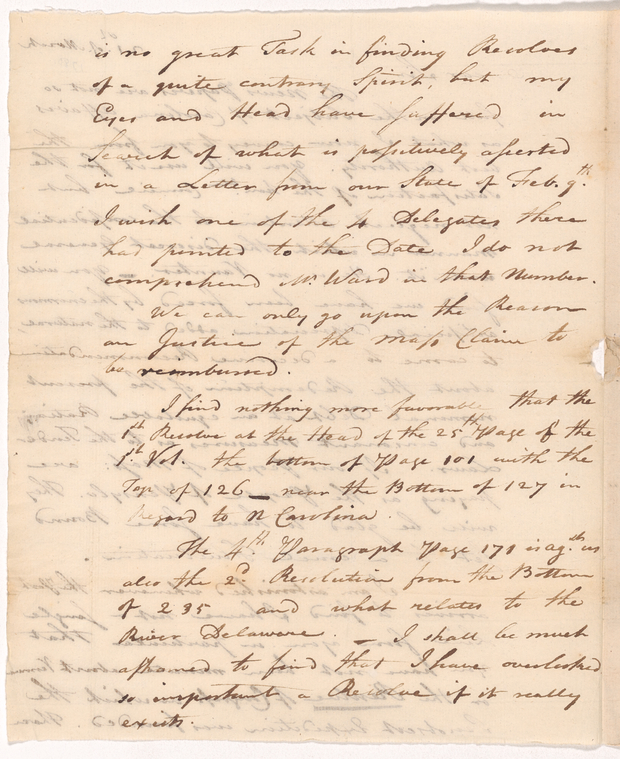 is no great Task in finding Resolves
of a quite contrary Spirit, but my
Eyes and Head have suffered in
Search of what is possitively asserted
in a Letter from our State of Feb. 9th.
I wish one of the 4 Delegates there
had pointed to the Date I do not
comprehend Mr. Ward in that Number.
We can only go upon the Reason
an Justice of the Mass Claim to
be reimbursed.
I find nothing more favorable that the
1st Resolve at the Head of the 25th Page of the
1st Vol. the bottom of Page 101 with the
Top of 126 _ near the Bottom of 127 in
Regard to N Carolina.
The 4th. Paragraph Page 171 is agst. us
also the 2d. Resolution from the Bottom
of 235 and what relates to the
River Delaware. _ I shall be much
ashamed to find that I have overlooked
so important a Resolve if it really
exists.